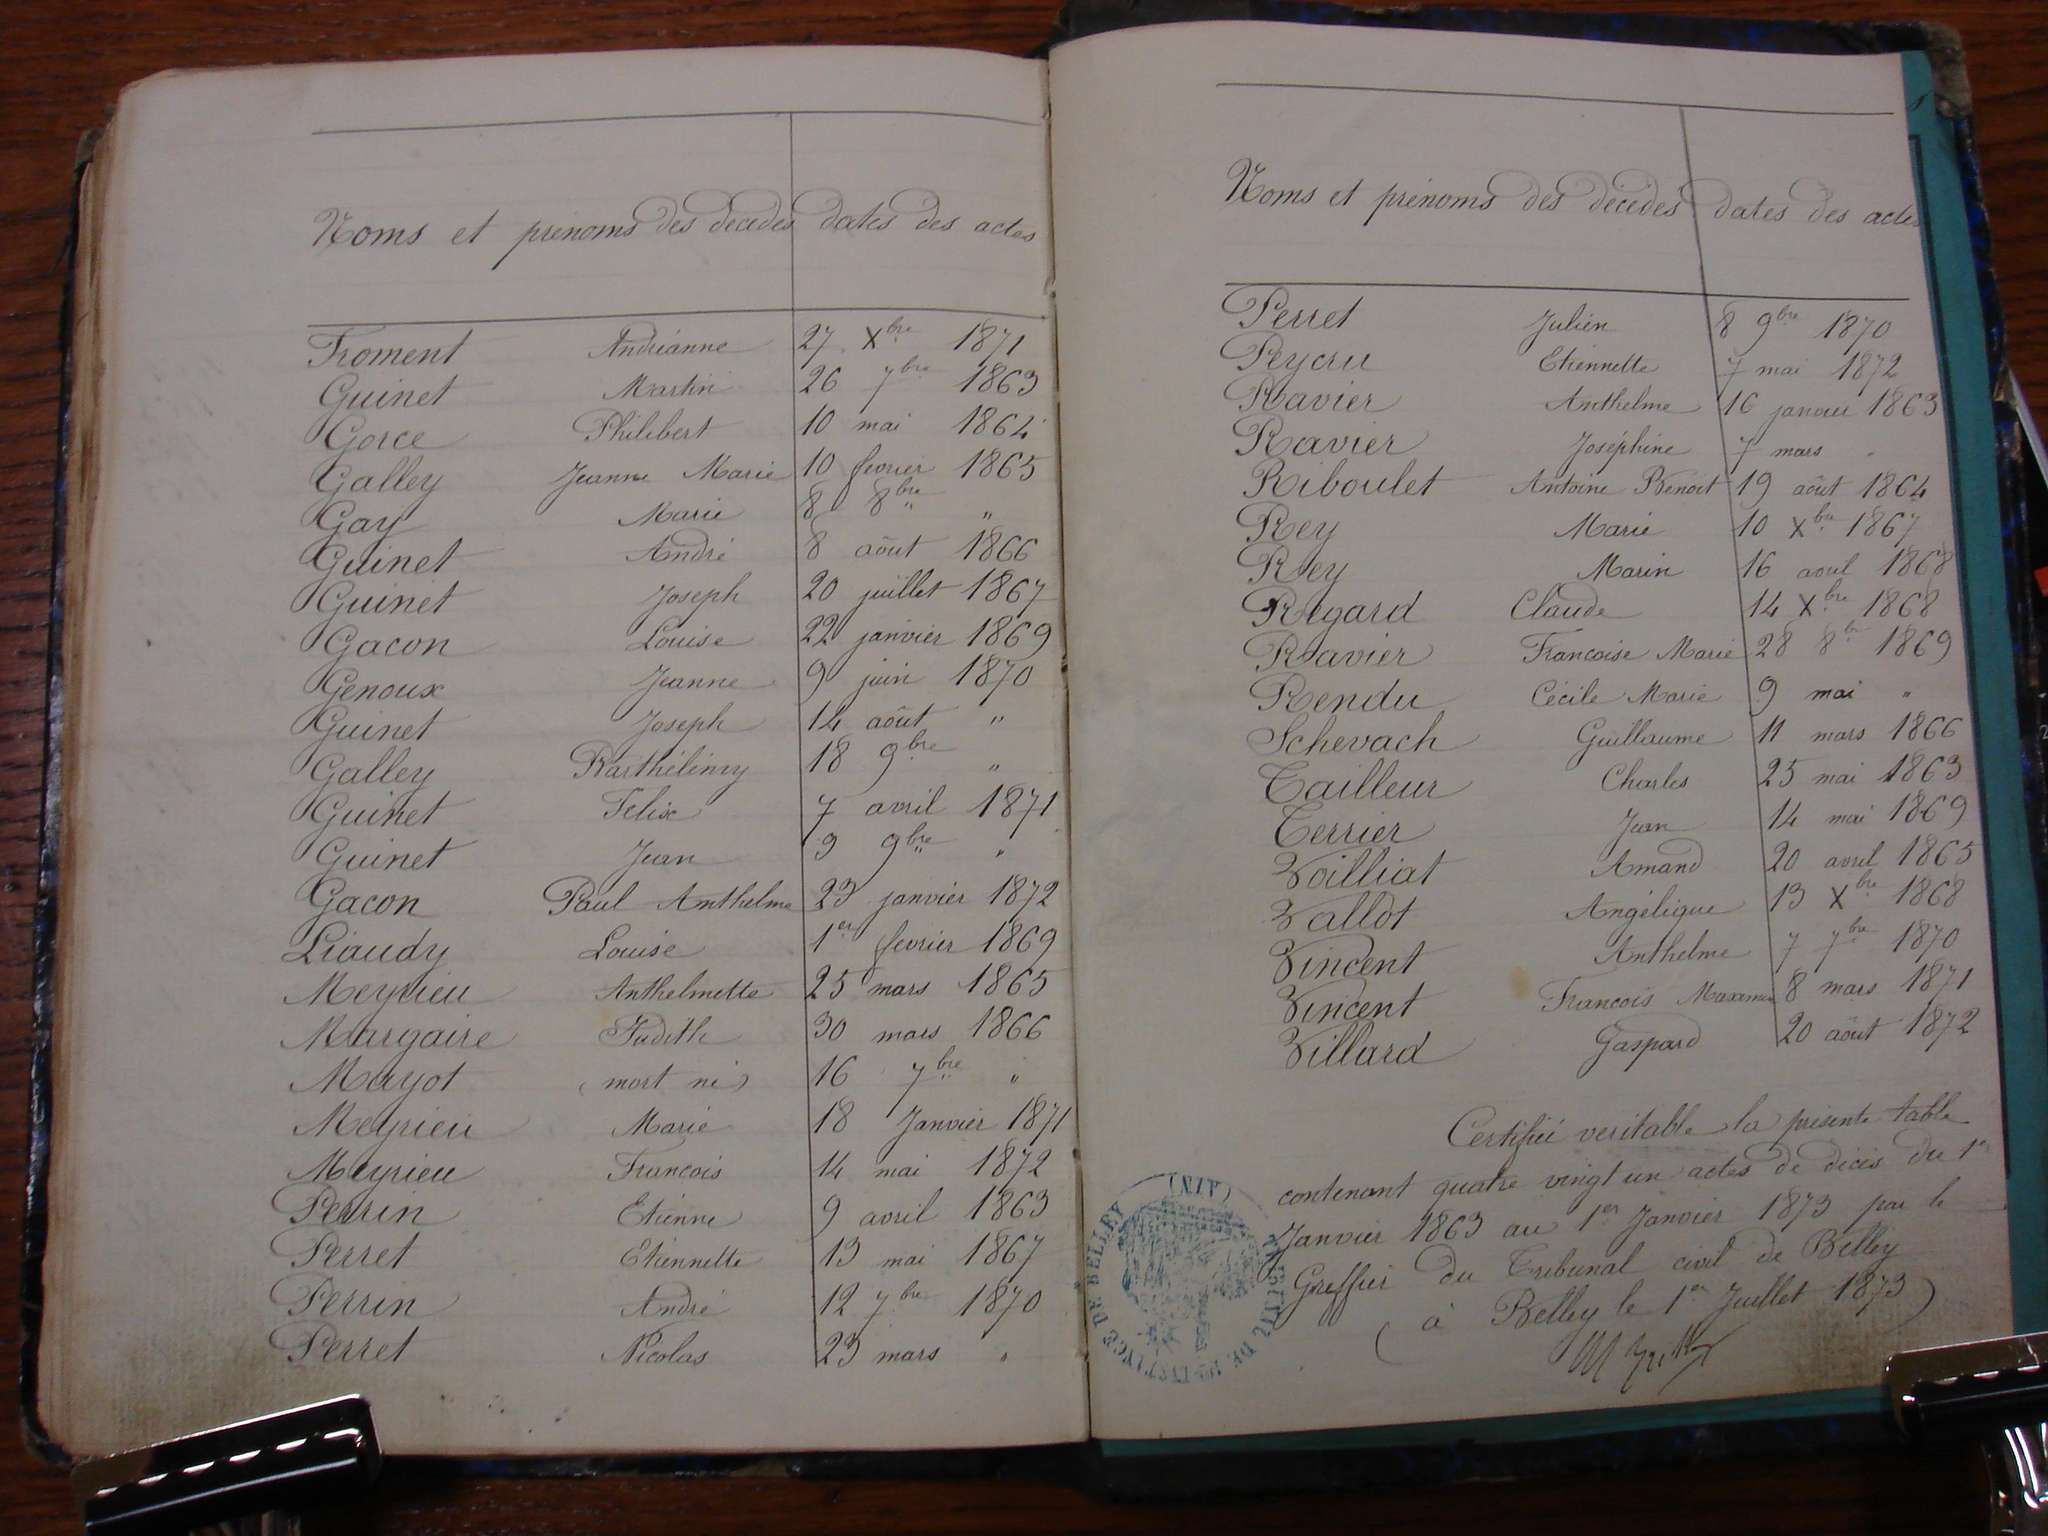 Noms et prénoms des décédés dates des actes
Froment Andrianne 27 Xbre 1871
Guinet Martin 26 7bre 1863
Gorce Philibert 10 mai 1864
Galley Jeanne Marie 10 fevrier 1865
Gay Marie 8 8bre "
Guinet André 8 aôut 1866
Guinet Joseph 20 juillet 1867
Gacon Louise 22 janvier 1869
Genoux Jeanne 9 juin 1870
Guinet Joseph 14 aôut "
Galley Barthélémy 18 9bre "
Guinet Felix 7 avril 1871
Guinet Jean 3 9bre "
Gacon Paul Anthelme 23 janvier 1872
Liaudy Louise 1er fevrier 1869
Meyrieu Anthelmette 25 mars 1865
Margaire Judith 30 mars 1866
Mayot (mort né) 16 7bre "
Meyrieu Marie 18 Janvier 1871
Meyrieu Francois 14 mai 1872
Perrin Etienne 9 avril 1863
Perret Etiennette 13 mai 1867
Perrin André 12 7bre 1870
Perret Nicolas 23 mars "
Noms et prénoms des décédés dates des actes
Perret Julien 8 9bre 1870
Peycru Etiennette 7 mai 1872
Ravier Anthelme 16 janvier 1863
Ravier Joséphine 7 mars "
Riboulet Antoine Benoit 19 aôut 1864
Rey Marie 10 Xbre 1867
Rey Marin 16 avril 1868
Regard Claude 14 Xbre 1868
Ravier Francoise Marie 28 8bre 1869
Rendu Cécile Marie 9 mai "
Schevach Guillaume 11 mars 1866
Tailleur Charles 25 mai 1863
Terrier Jean 14 mai 1869
Voilliat Amand 20 avril 1865
Vallot Angélique 13 Xbre 1868
Vincent Anthelme 7 7bre 1870
Vincent Francois 8 mars 1871
Villard Gaspard 20 aôut 1872
Certifié veritable la présente table
contenant quatre vingt un actes de décès du 1er
Janvier 1863 au 1er Janvier 1873 par le
Greffier du Tribunal civil de Belley
(à Belley le 1er Juillet 1873)
TRIBUNAL DE 1RE INSTANCE DE BELLEY (AIN)